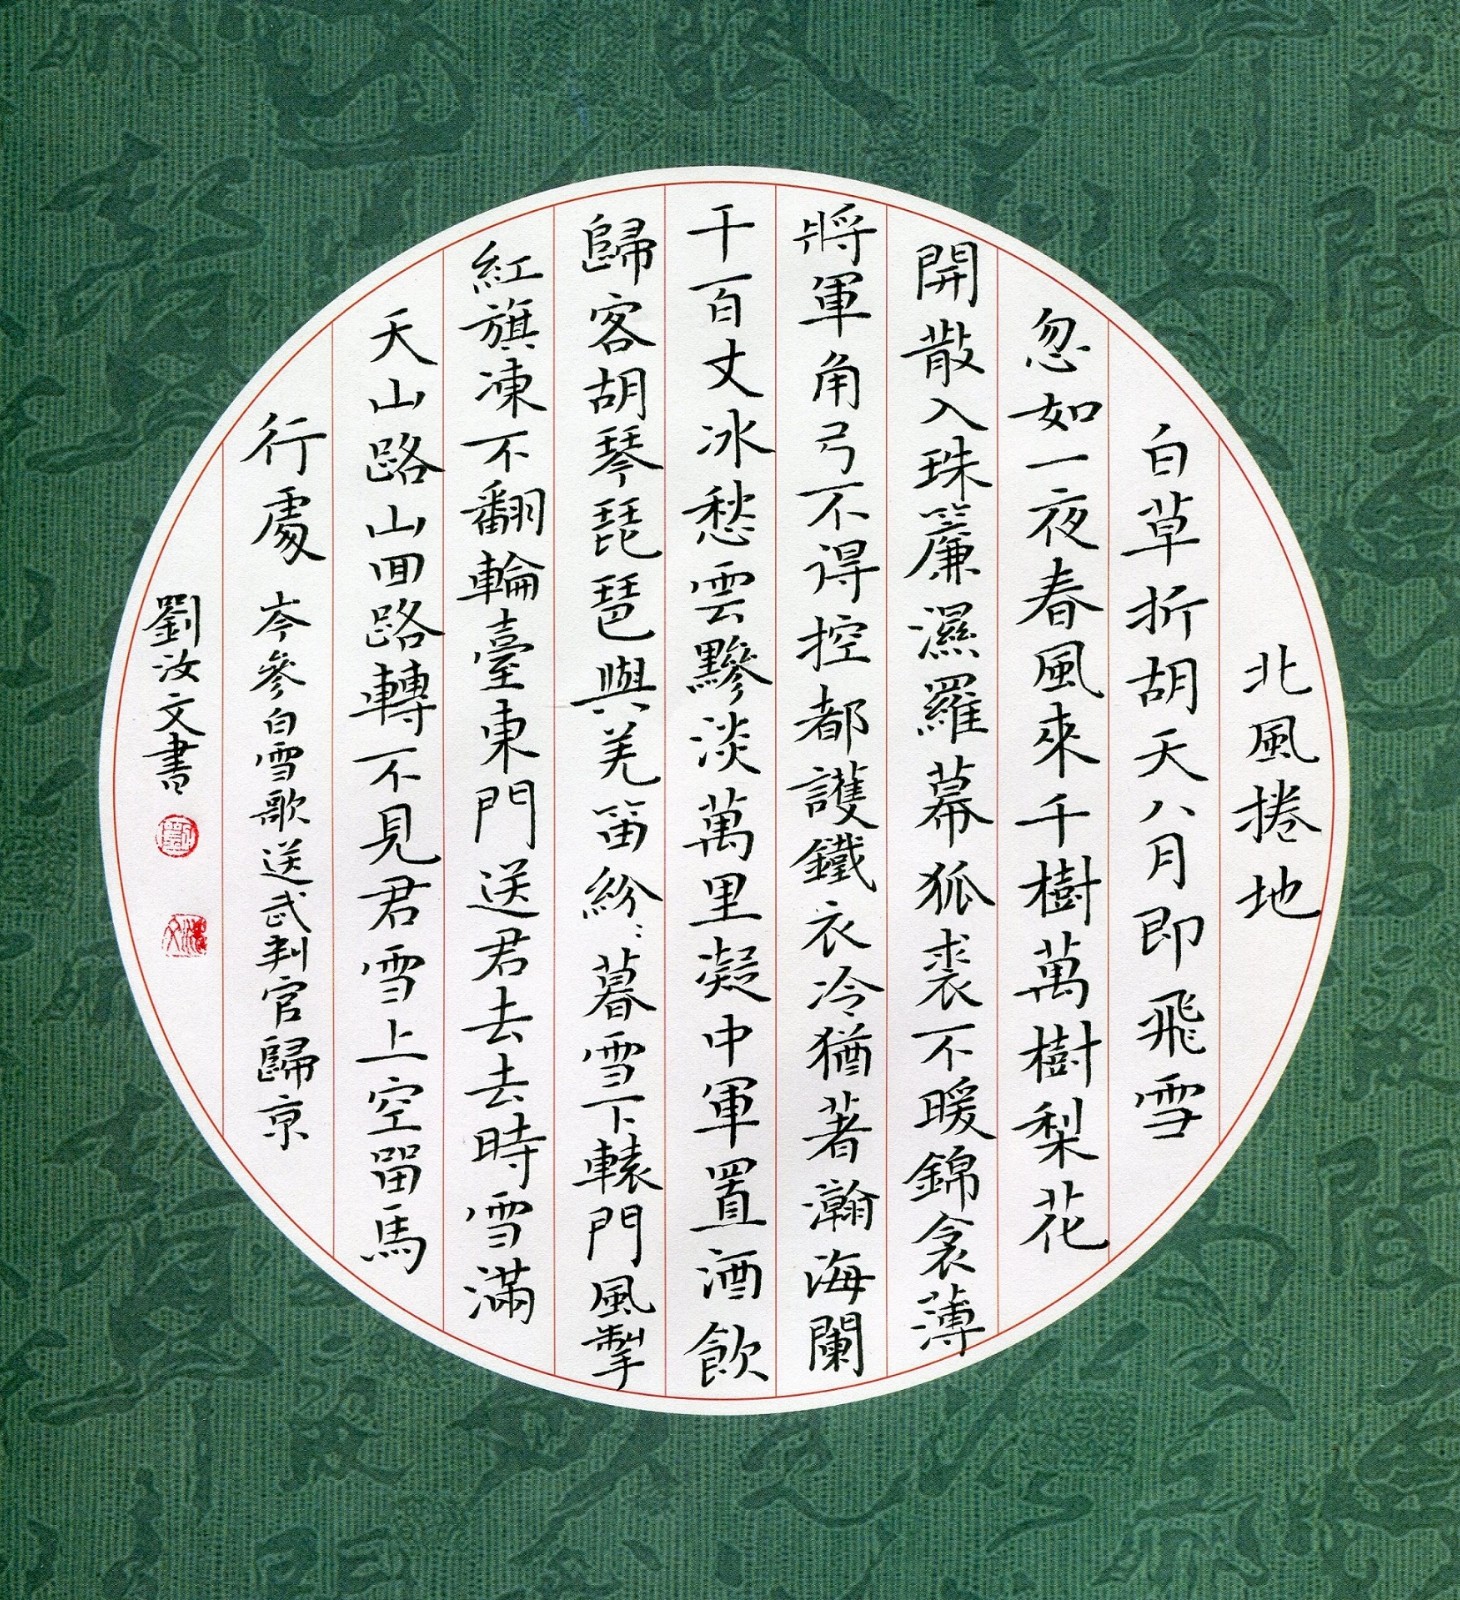 北風捲地
白草折胡天八月即飛雪
忽如一夜春風來千樹萬樹梨花
開散入珠簾濕羅幕狐裘不暖錦衾薄
將軍角弓不得控都護鐵衣冷猶著瀚海闌
干百丈冰愁雲黲淡萬里凝中軍置酒飲
歸客胡琴琵琶與羌笛紛〻暮雪下轅門風掣
紅旗凍不翻輪臺東門送君去去時雪滿
天山路山回路轉不見君雪上空留馬
行處 岑參白雪歌送武判官歸京
劉汝文書
劉
汝文